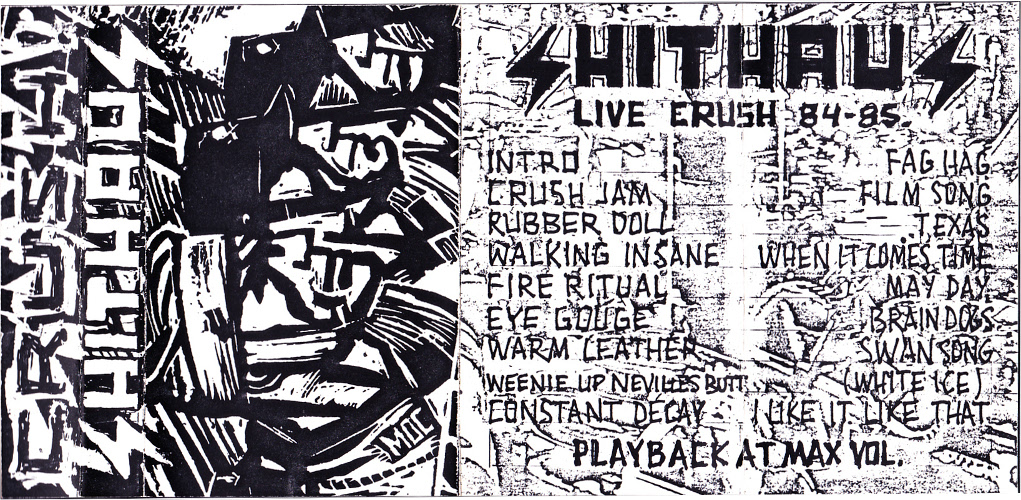 CRUSHA!
SHITHAUS
MOL
SHITHAUS
LIVE ERUSH 84-85.
INTRO
CRUSH JAM
RUBBER DOLL
WALKING INSANE
FIRE RITUAL
EYE GOUGE
WARM LEATHER
WEENIE UP NEVILLES BUTT
CONSTANT DECAY
FAG HAG
FILM SONG
TEXAS
WHEN IT COMES TIME
MAY DAY
BRAIN DOGS
SWAN SONG
(WHITE ICE)
I LIKE IT LIKE THAT
PLAYBACK AT MAX VOL.